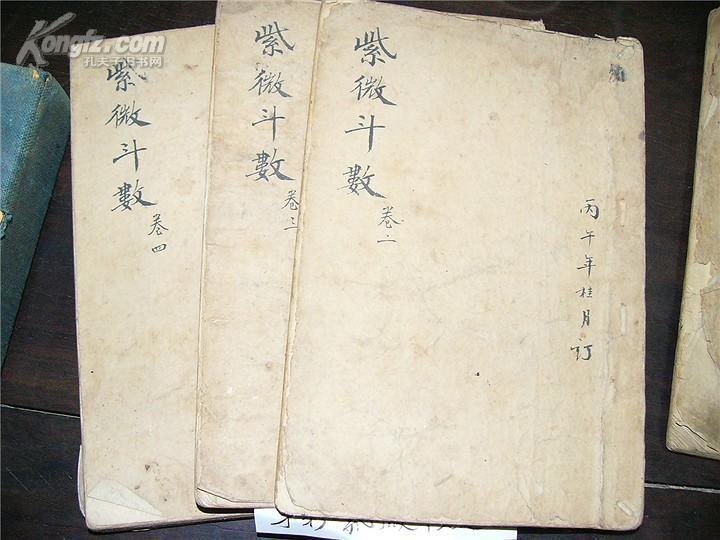 Kongfz.com
孔夫子旧书网
紫微斗數
卷四
紫微斗數
卷三
紫微斗數
卷二
丙午年桂月訂